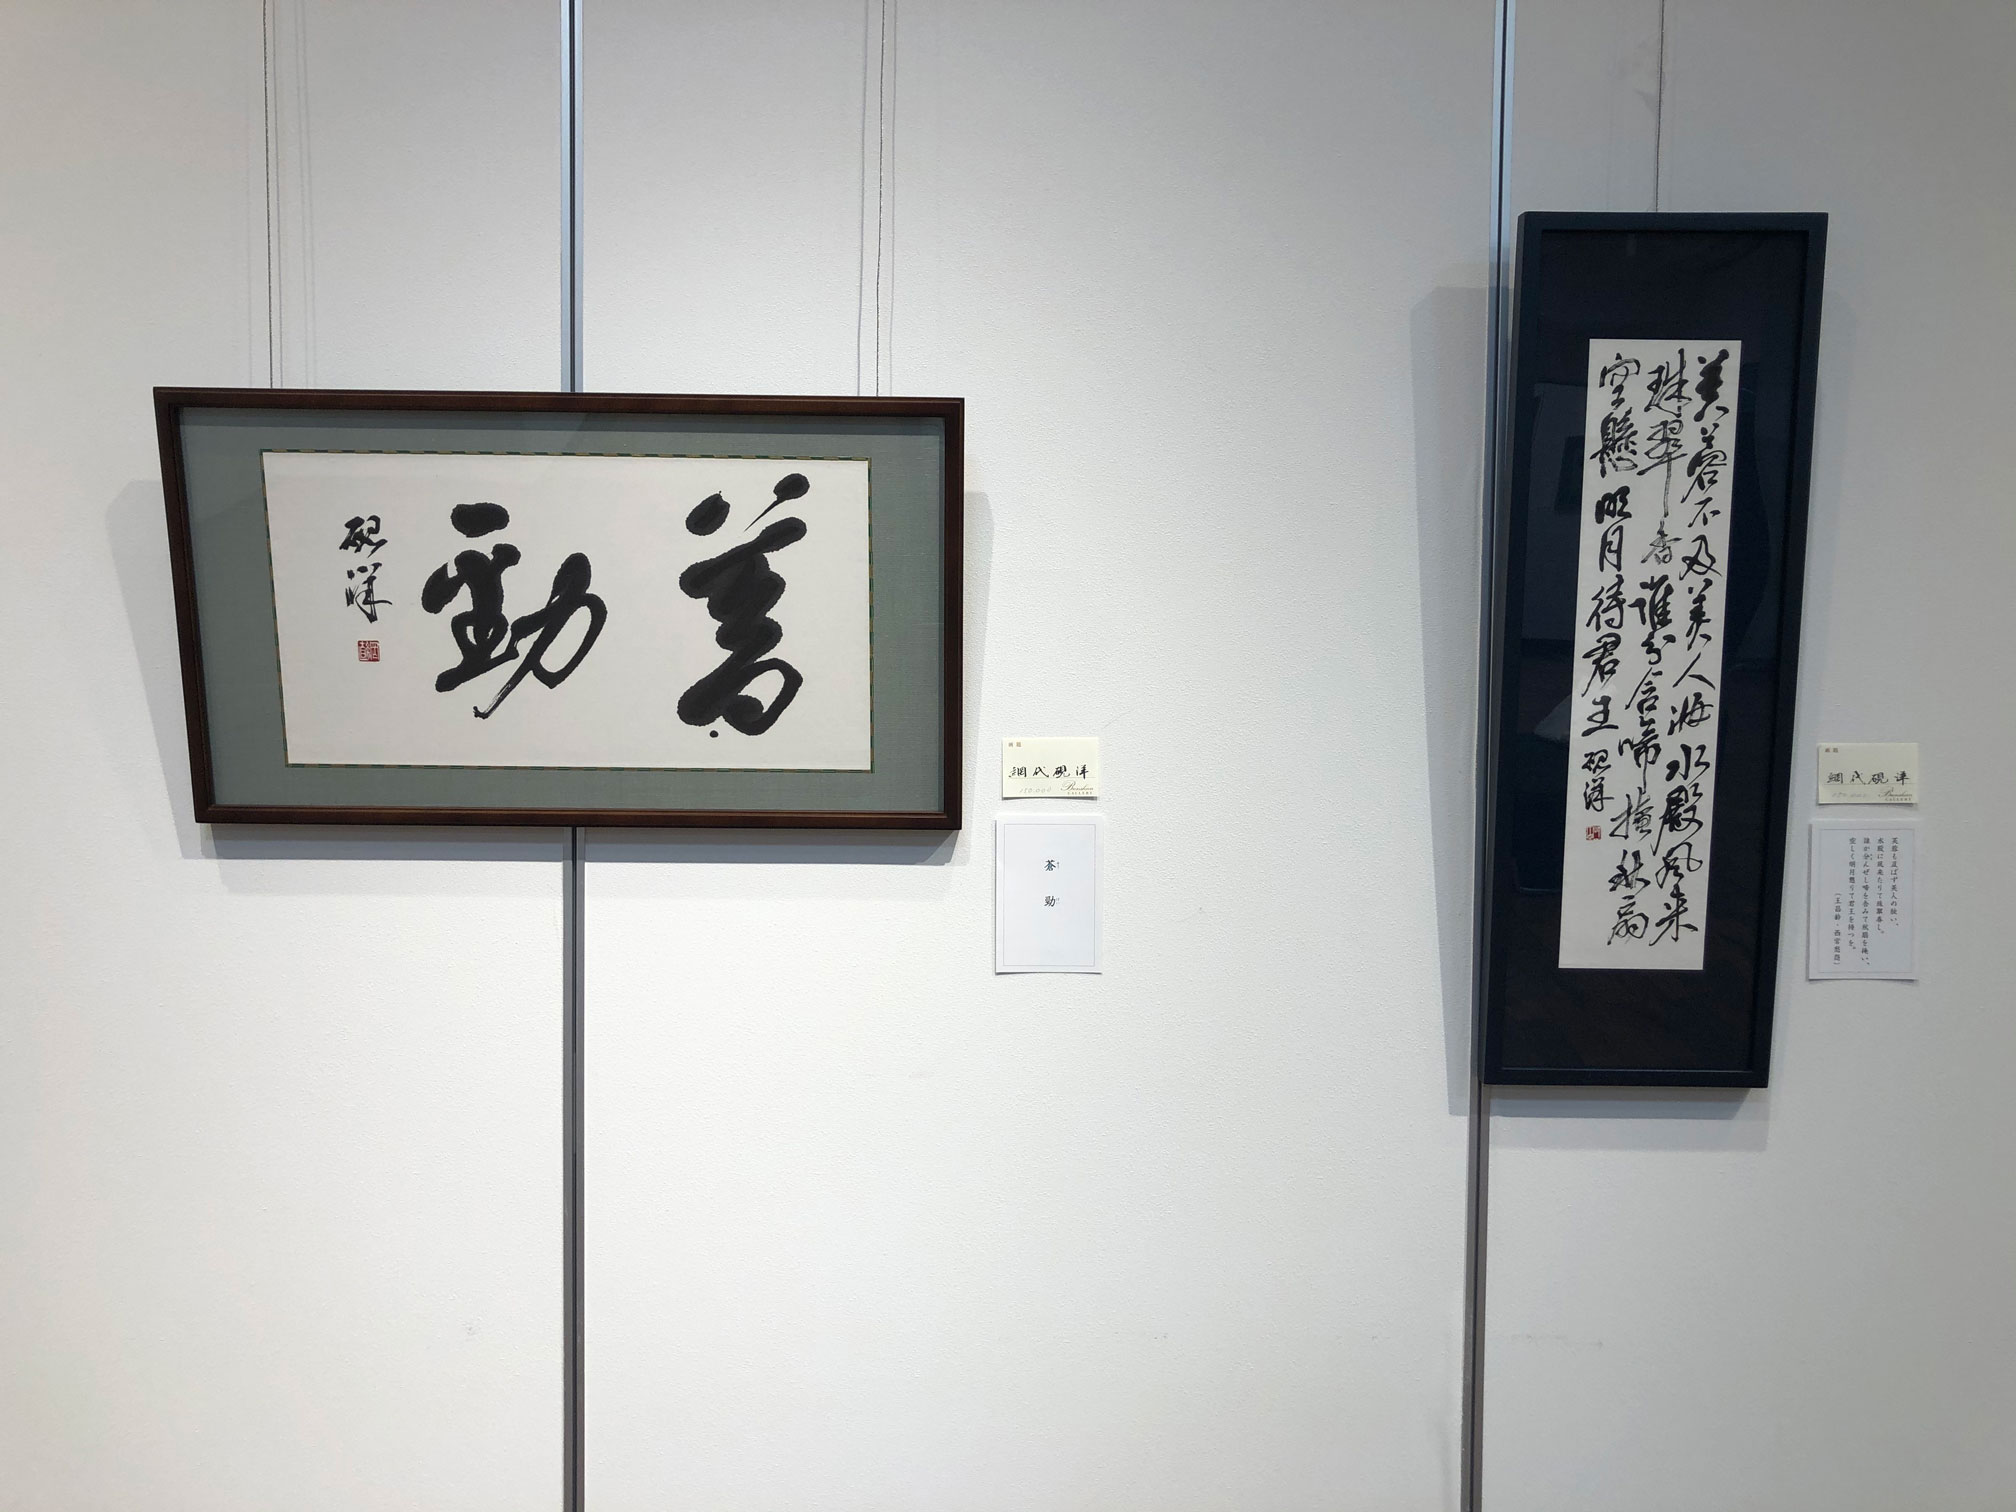 蒼勁
硯洋
網代硯洋
150,000
GALLERY
蒼勁
芙蓉不及美人粧水殿風来
珠翠香誰分含啼掩秋扇
空懸明月待君王 硯洋
網代硯洋
GALLERY
芙蓉も及ばず美人の粧い、
水殿に風来たりて珠翠香し。
誰か分んぜし啼を含みて秋扇を掩い、
空しく明月懸りて君王を待つを。